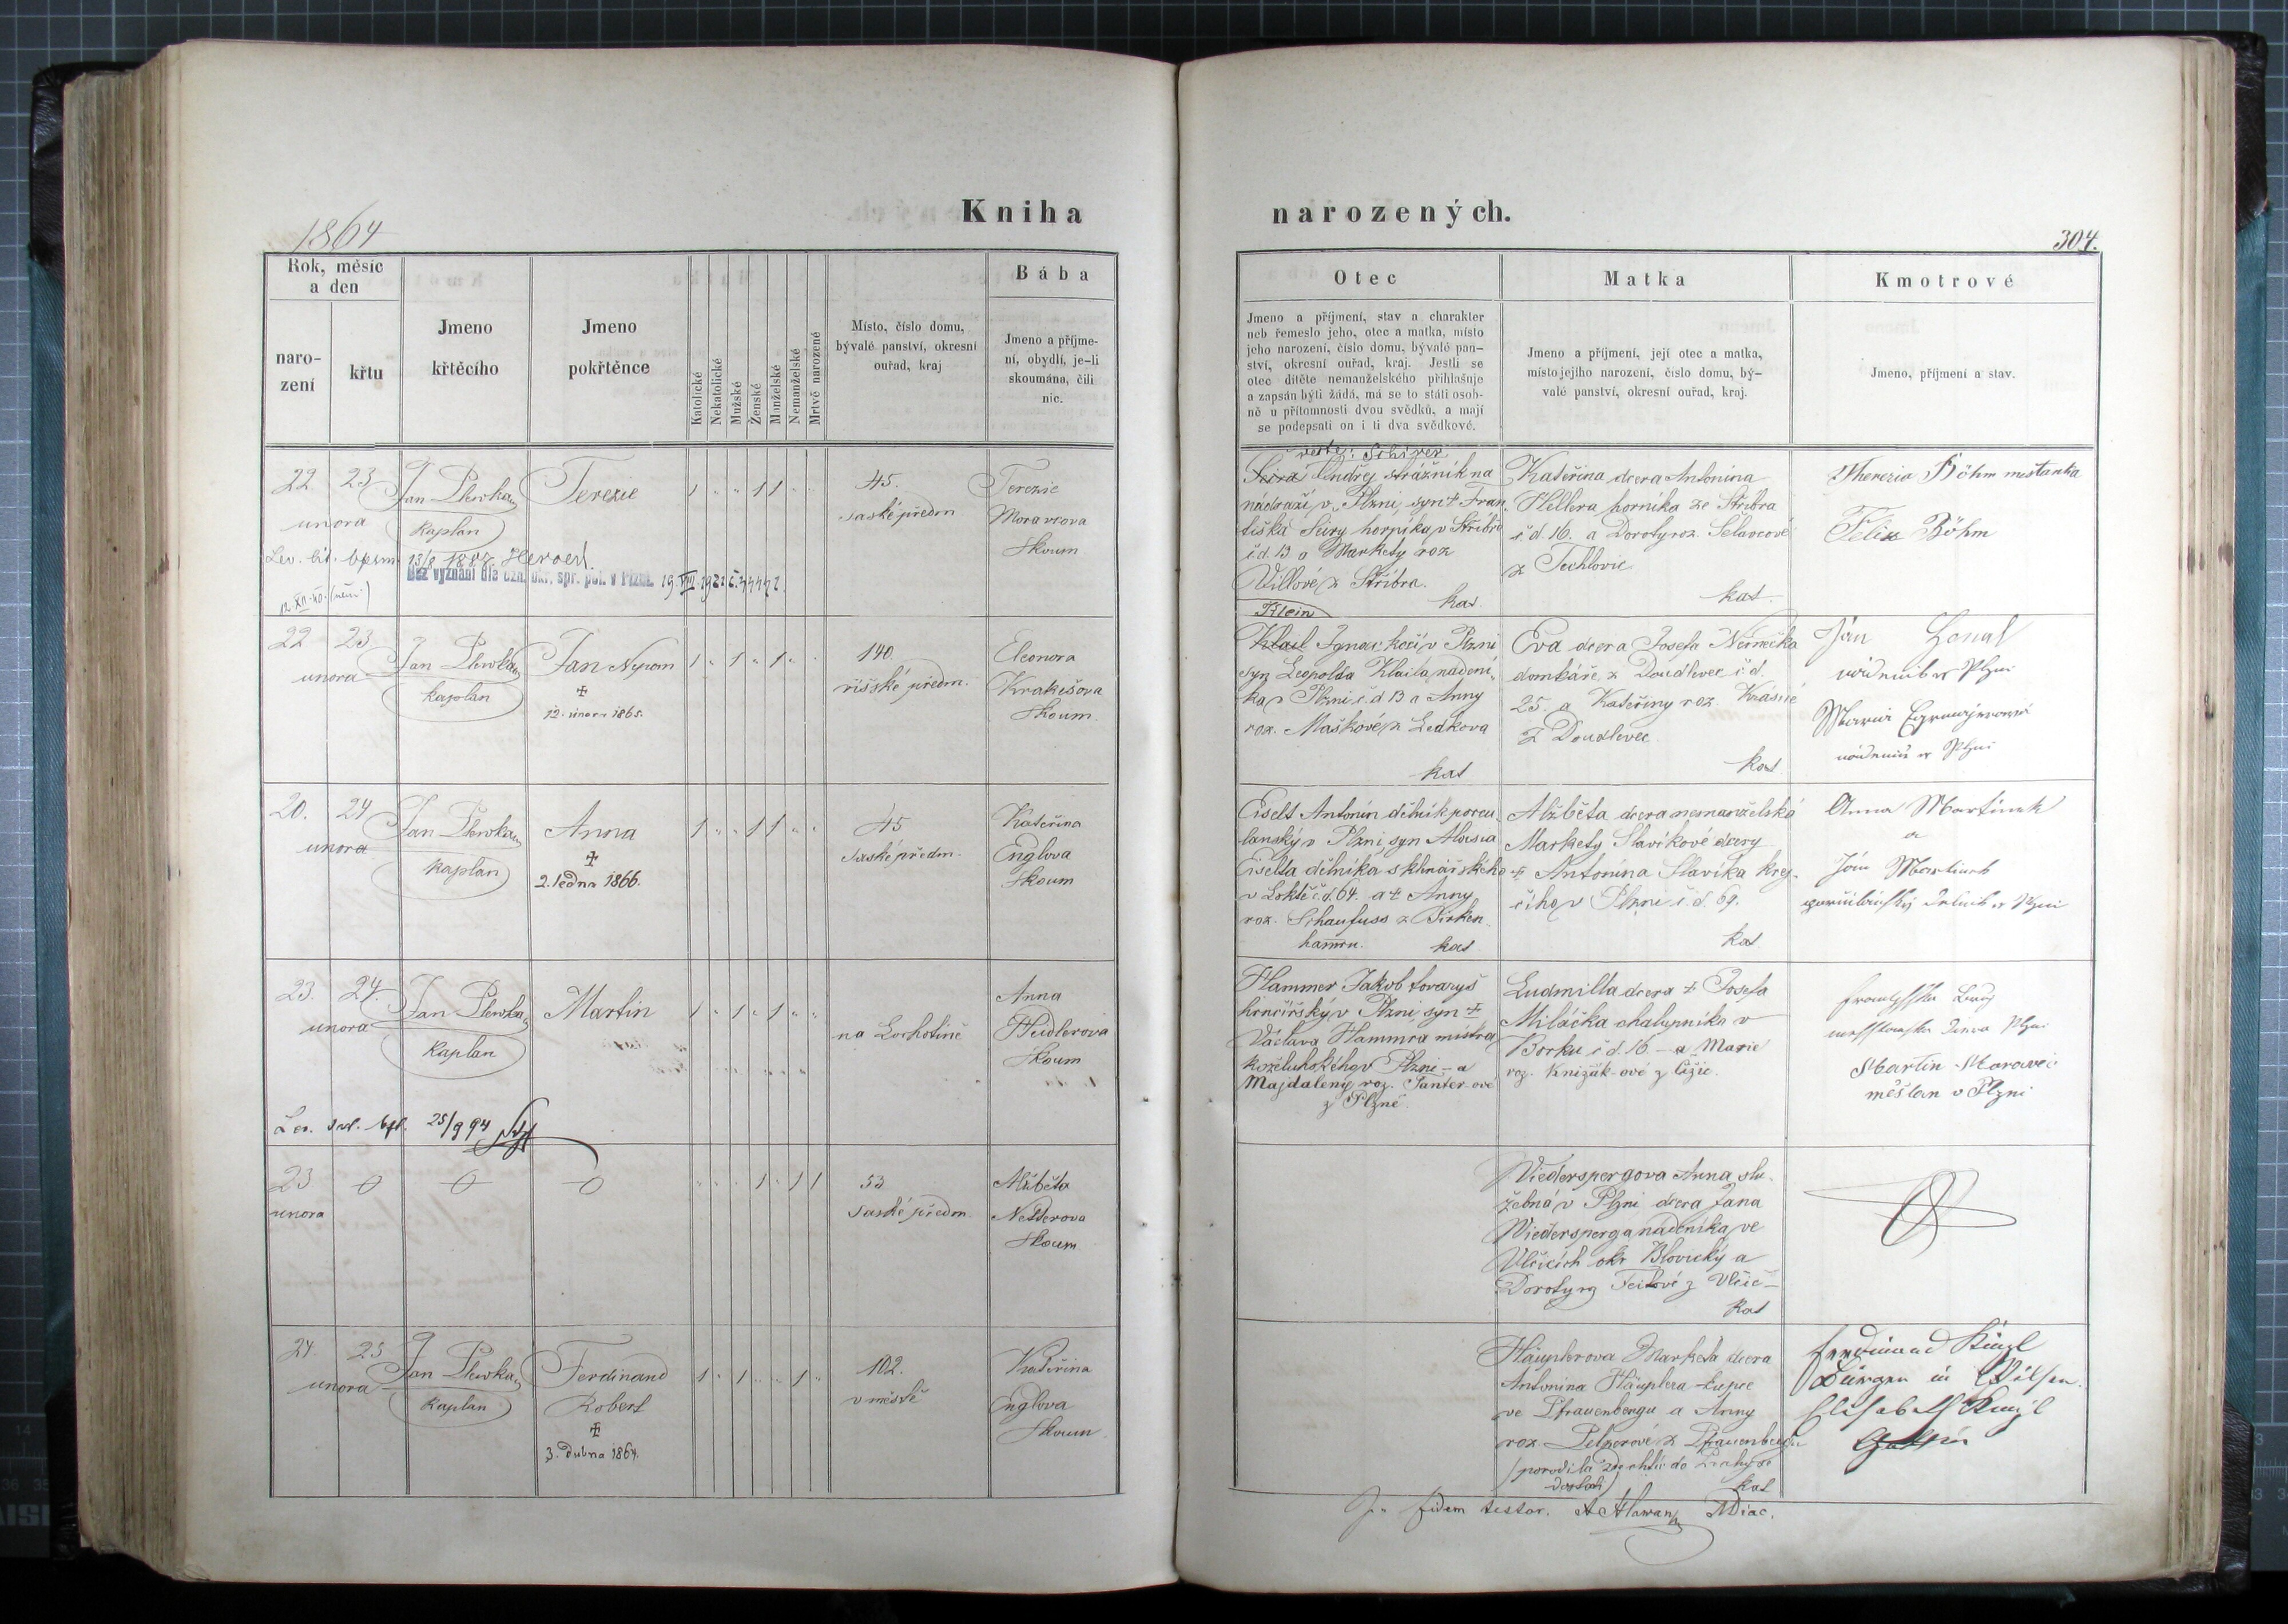 1864
Kniha
narozených.
304.
Rok, měsíc
a den
naro-
zení
křtu
Jmeno
křtěcího
Jmeno
pokřtěnce
Katolické
Nekatolické
Mužské
Ženské
Manželské
Nemanželské
Mrtvě narozené
Místo, číslo domu,
bývalé panství, okresní
ouřad, kraj
Bába
Jmeno a příjme-
ní, obydlí, je-li
skoumána, čili
nic.
Otec
Jmeno a příjmení, stav a charakter
neb řemeslo jeho, otec a matka, místo
jeho narození, číslo domu, bývalé pan-
ství, okresní ouřad, kraj. Jestli se
otec dítěte nemanželského přihlašuje
a zapsán býti žádá, má se to státi osob-
ně u přítomnosti dvou svědků, a mají
se podepsati on i ti dva svědkové.
Matka
Jmeno a příjmení, její otec a matka,
místo jejího narození, číslo domu, bý-
valé panství, okresní ouřad, kraj.
Kmotrové
Jmeno, příjmení a stav.
22 23
unora
Jan Plewka
Kaplan
Terezie
1 " " 1 1 " "
45.
saské předm.
Terezie
Moravcova
skoum
13/8 1887
Bez vyznání dle ozn. okr. spr. pol. v Plzni. 19. VIII. 1921
Ondřej strážník na
nádraží v Plzni, syn + Fran
tiška horníka v Stříbře
č d. 13 a Markety roz
Villové z Stříbra.
kat.
Kateřina dcera Antonína
Hellera horníka ze Stříbra
č d. 16. a Doroty roz.
z Techlovic
kat.
Theresia Böhm mestanka
Felix Böhm
22 23
unora
Jan Plewka
Kaplan
Jan Nepom
+
12. února 1865.
1 " 1 " 1 " "
140.
říšské předm.
Eleonora
Krakešova
skoum.
Klein
Klail Ignac kočí v Plzni
syn Leopolda Klaila nadení-
ka v Plzni č. d 13 a Anny
roz. Maškové z Ledkova
kat
Eva dcera Josefa Německa
domkáře z Doudlevec č. d.
25. a Kateřiny roz. Krásné
z Doudlevec
kat
Jan
Plzni
20. 24
unora
Jan Plewka
Kaplan
Anna
+
2. ledna 1866.
1 " " 1 1 " "
45
saské předm.
Kateřina
Englova
skoum
Eiselt Antonín dělník porcu
lanský v Plzni, syn Aloisia
Eiselta dělníka sklenářského
v Loktě č. d. 64. a + Anny
roz. Schaufuss z Pirken
hammru. kat
Alžběta dcera nemanželská
Markety Slavíkové dcery
+ Antonína Slavíka krej-
čího v Plzni č. d. 69.
kat
Anna Martinek
a
Jan Martinek
23. 24.
unora
Jan Plewka
Kaplan
Martin
1 " 1 " 1 " "
na Lochotíně
Anna
Heidlerova
skoum
25/9 94
Hammer Jakob tovaryš
hrnčířský v Plzni, syn +
Václava Hammra mistra
koželuhského v Plzni – a
Majdaleny roz. Panter-ové
z Plzně.
Ludmilla dcera + Josefa
Miláčka chalupníka v
Borku č d. 16 – a Marie
roz. Knižák-ové z Čižic.
Martin Moravec
měšťan v Plzni
23
unora
" " " 1 " 1 1
53
saské předm.
Alžběta
Netterova
skoum
Niederspergova Anna slu-
žebná v Plzni dcera Jana
Niedersperga nádeníka ve
Vlčicích okr. Blovický a
Doroty roz Feitové z Vlčic –
kat
24. 25
unora
Jan Plewka
Kaplan
Ferdinand
Robert
+
3. dubna 1864.
1 " 1 " " 1 "
102.
v městě
Kateřina
Englova
skoum.
Häuplerova Marketa dcera
Antonína Häuplera kupce
ve Pfrauenbergu a Anny
roz. Pelzerové z Pfrauenbergu
kat
Ferdinand
Bürger in Pilsen.
Elisabeth
Gattin
In fidem testor. A Hlawan